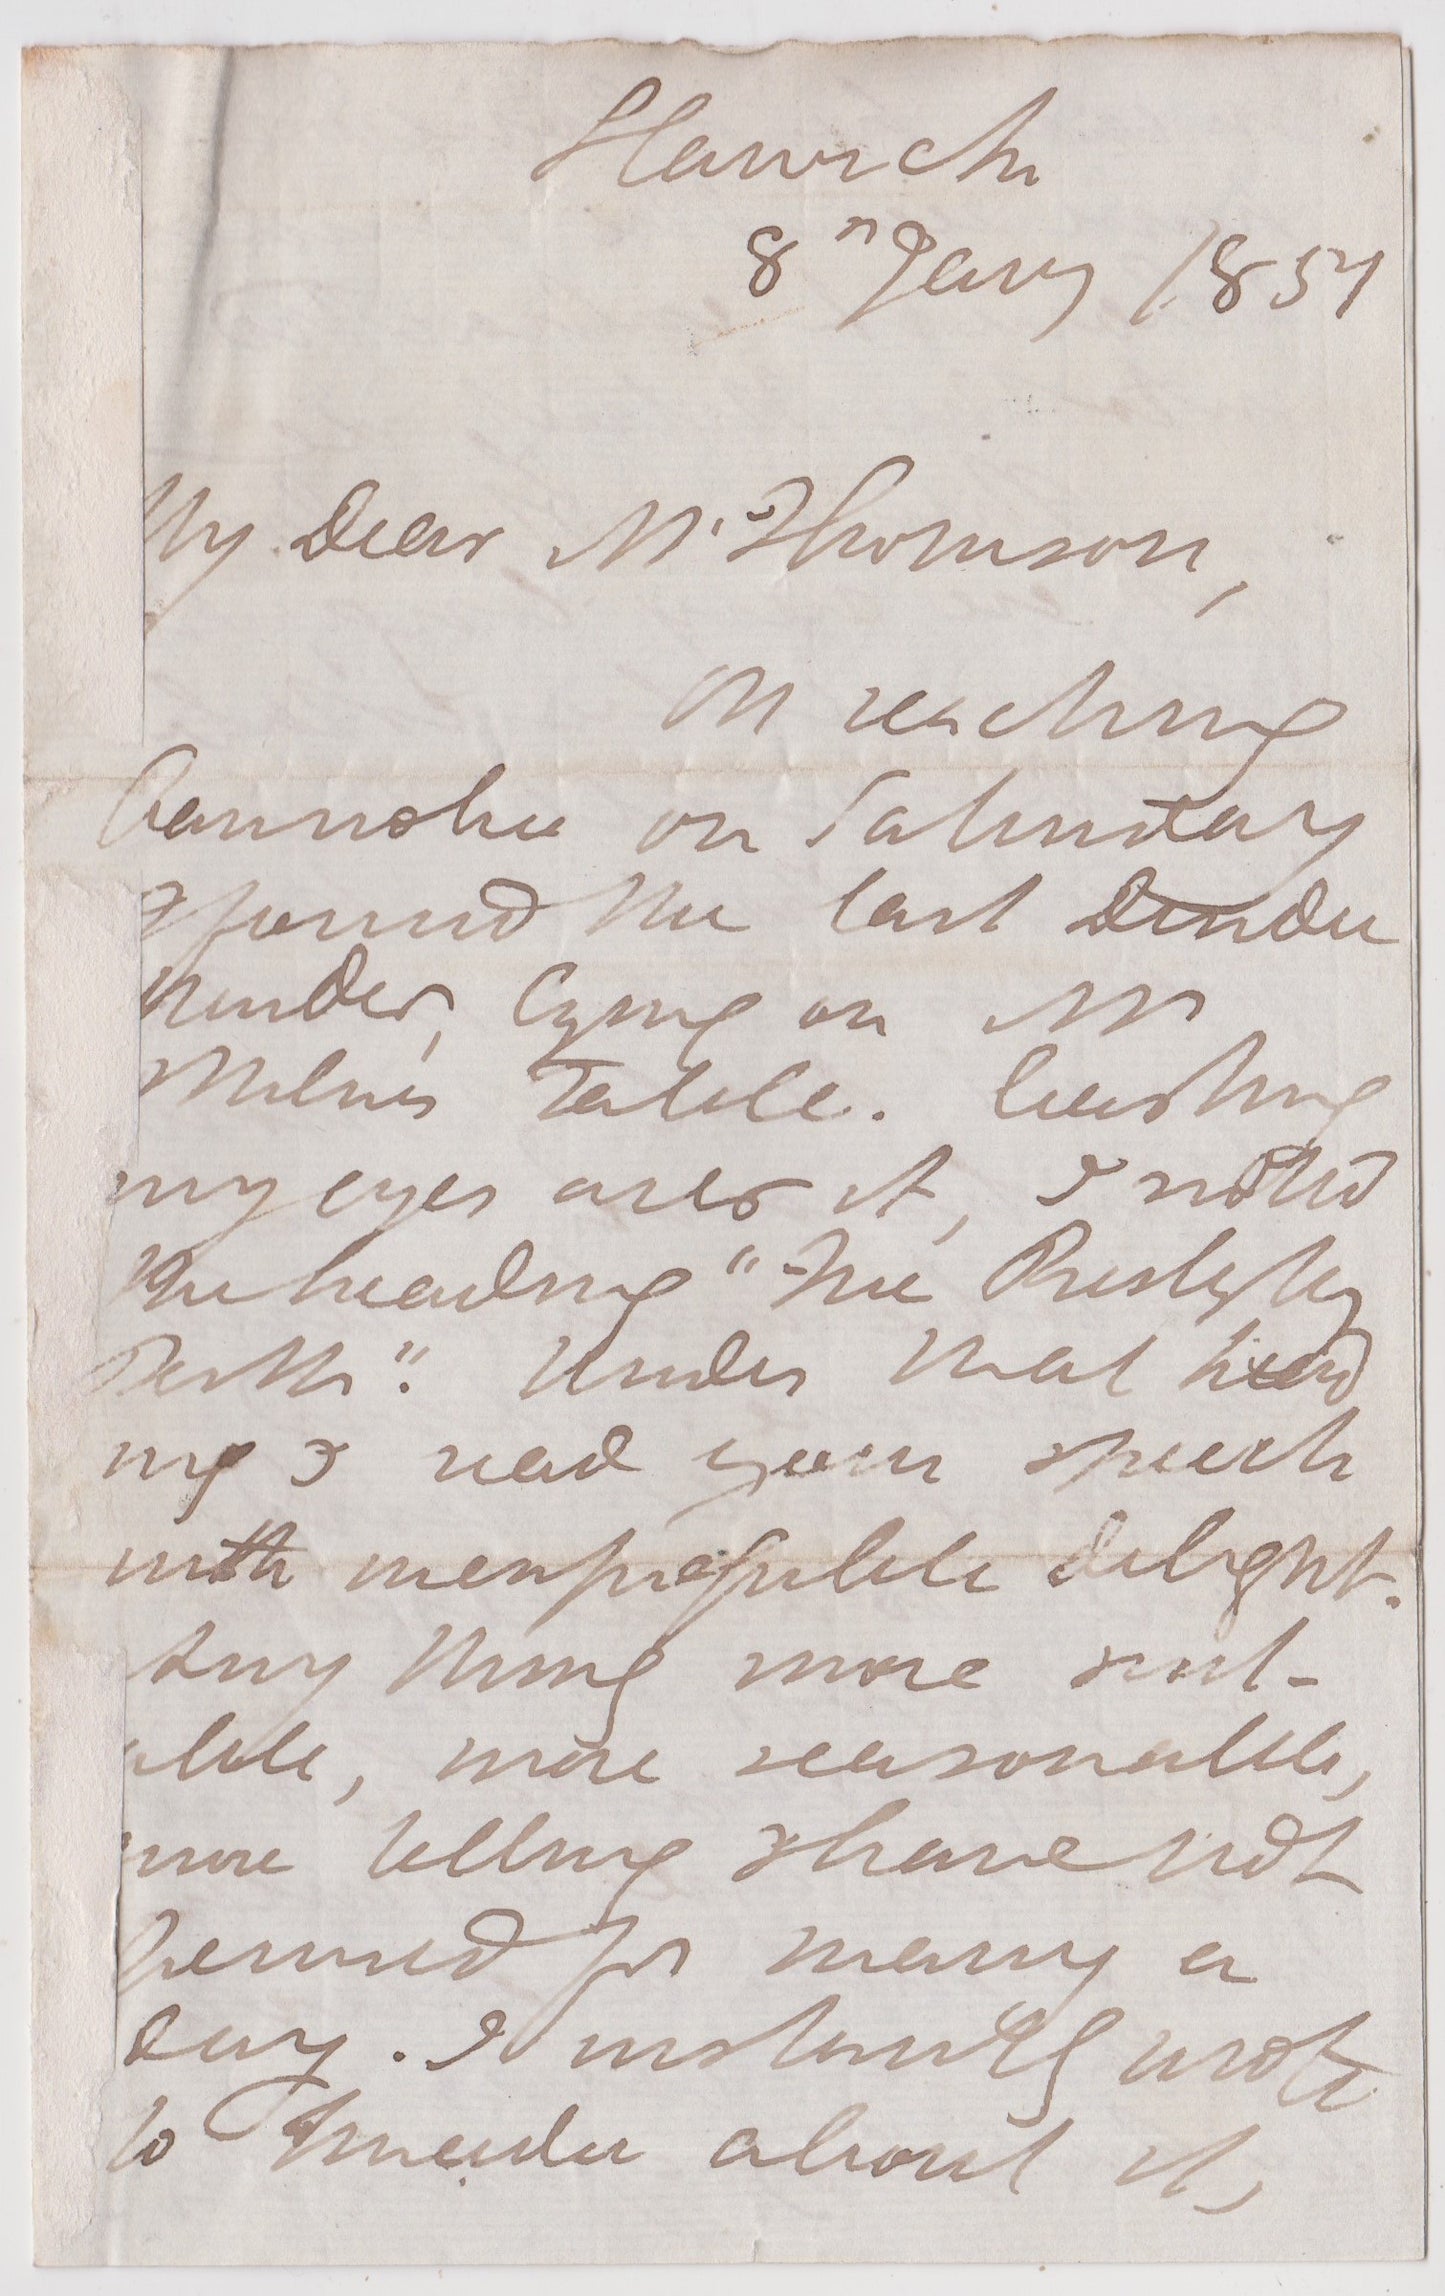 Harwich
8th Jany 1857
My Dear Mr Thomson,
On reaching
on Saturday
I found the last Dundee
lying on Mr
Milne's Table. Casting
my eyes over it, I noticed
the heading "Free Presbytery
Perth". Under that head
ing I read your speech
with inexpressible delight.
Any thing more suit-
able, more reasonable,
more telling I have not
perused for many a
day. I instantly wrote
to about it,